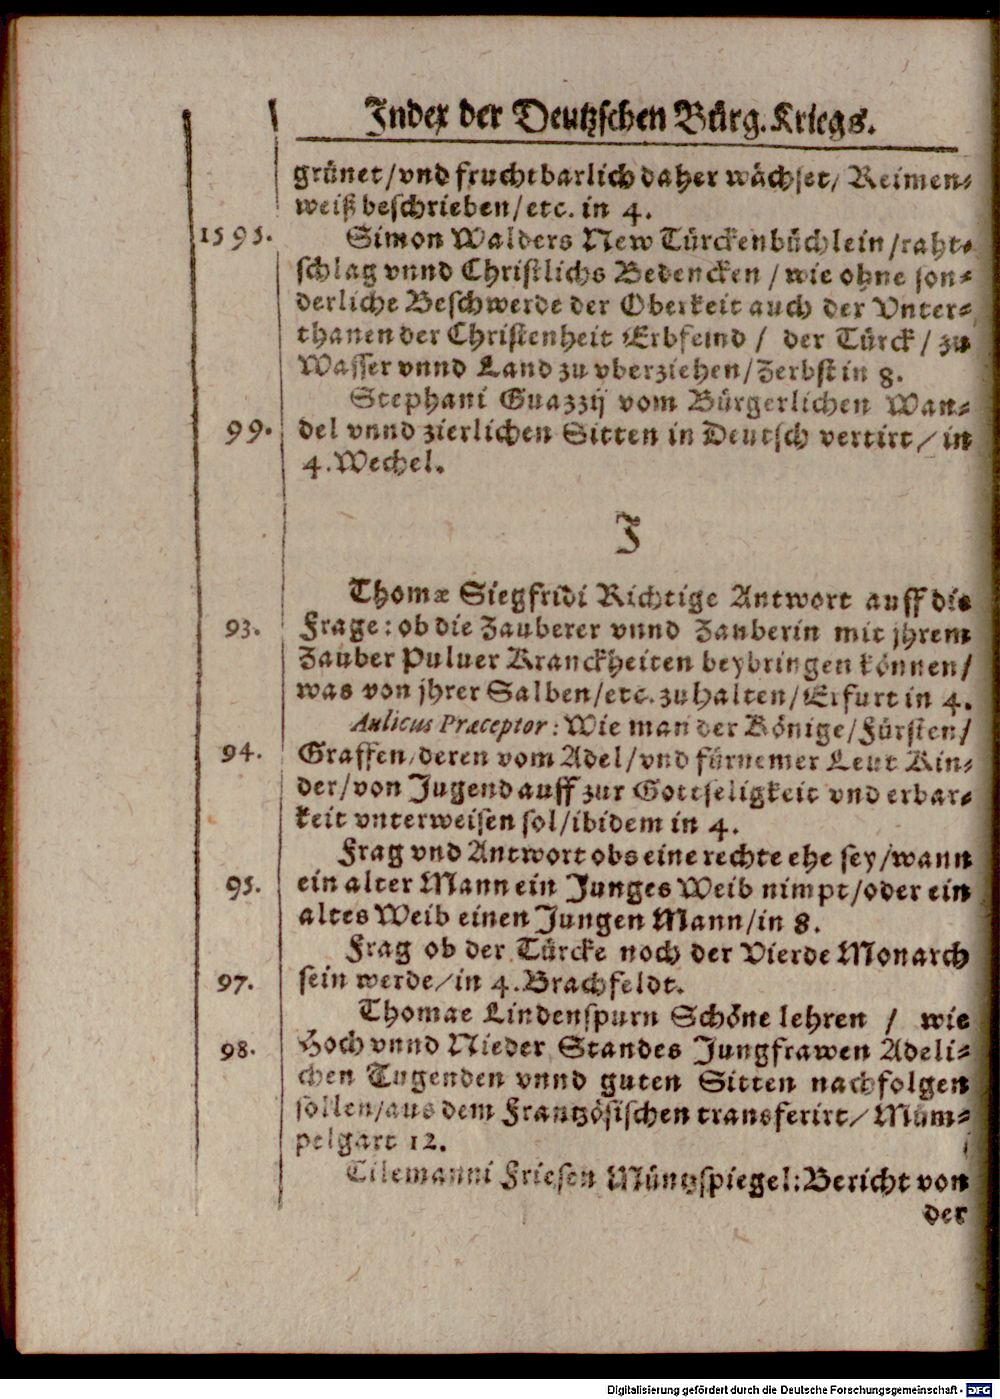 Index der Deutzschen Bürg. Kriegs.
grünet/vnd fruchtbarlich daher wächset/ Reimen-
weiß beschrieben/etc. in 4.
1595. Simon Walders New Türckenbüchlein/raht-
schlag vnnd Christlichs Bedencken / wie ohne son-
derliche Beschwerde der Oberkeit auch der Vnter-
thanen der Christenheit Erbfeind / der Türck/ zu
Wasser vnnd Land zu vberziehen/Zerbst in 8.
Stephani Guazzij vom Bürgerlichen Wan-
99. del vnnd zierlichen Sitten in Deutsch vertirt/ in
4. Wechel.
J
Thomæ Siegfridi Richtige Antwort auff die
93. Frage: ob die Zauberer vnnd Zauberin mit jhrem
Zauber Puluer Kranckheiten beybringen können/
was von jhrer Salben/etc. zu halten/Erfurt in 4.
Aulicus Præceptor: Wie man der Könige/Fürsten/
94. Graffen/deren vom Adel/vnd fürnemer Leut Kin-
der/von Jugend auff zur Gottseligkeit vnd erbar-
keit vnterweisen sol/ibidem in 4.
Frag vnd Antwort obs eine rechte ehe sey/wann
95. ein alter Mann ein Junges Weib nimpt/oder ein
altes Weib einen Jungen Mann/in 8.
Frag ob der Türcke noch der Vierde Monarch
97. sein werde/in 4. Brachfeldt.
Thomae Lindenspurn Schöne lehren / wie
98. Hoch vnnd Nieder Standes Jungfrawen Adeli-
chen Tugenden vnnd guten Sitten nachfolgen
sollen/aus dem Frantzösischen transferirt/ Müm-
pelgart 12.
Tilemanni Friesen Müntzspiegel: Bericht von
der
Digitalisierung gefördert durch die Deutsche Forschungsgemeinschaft - DFG